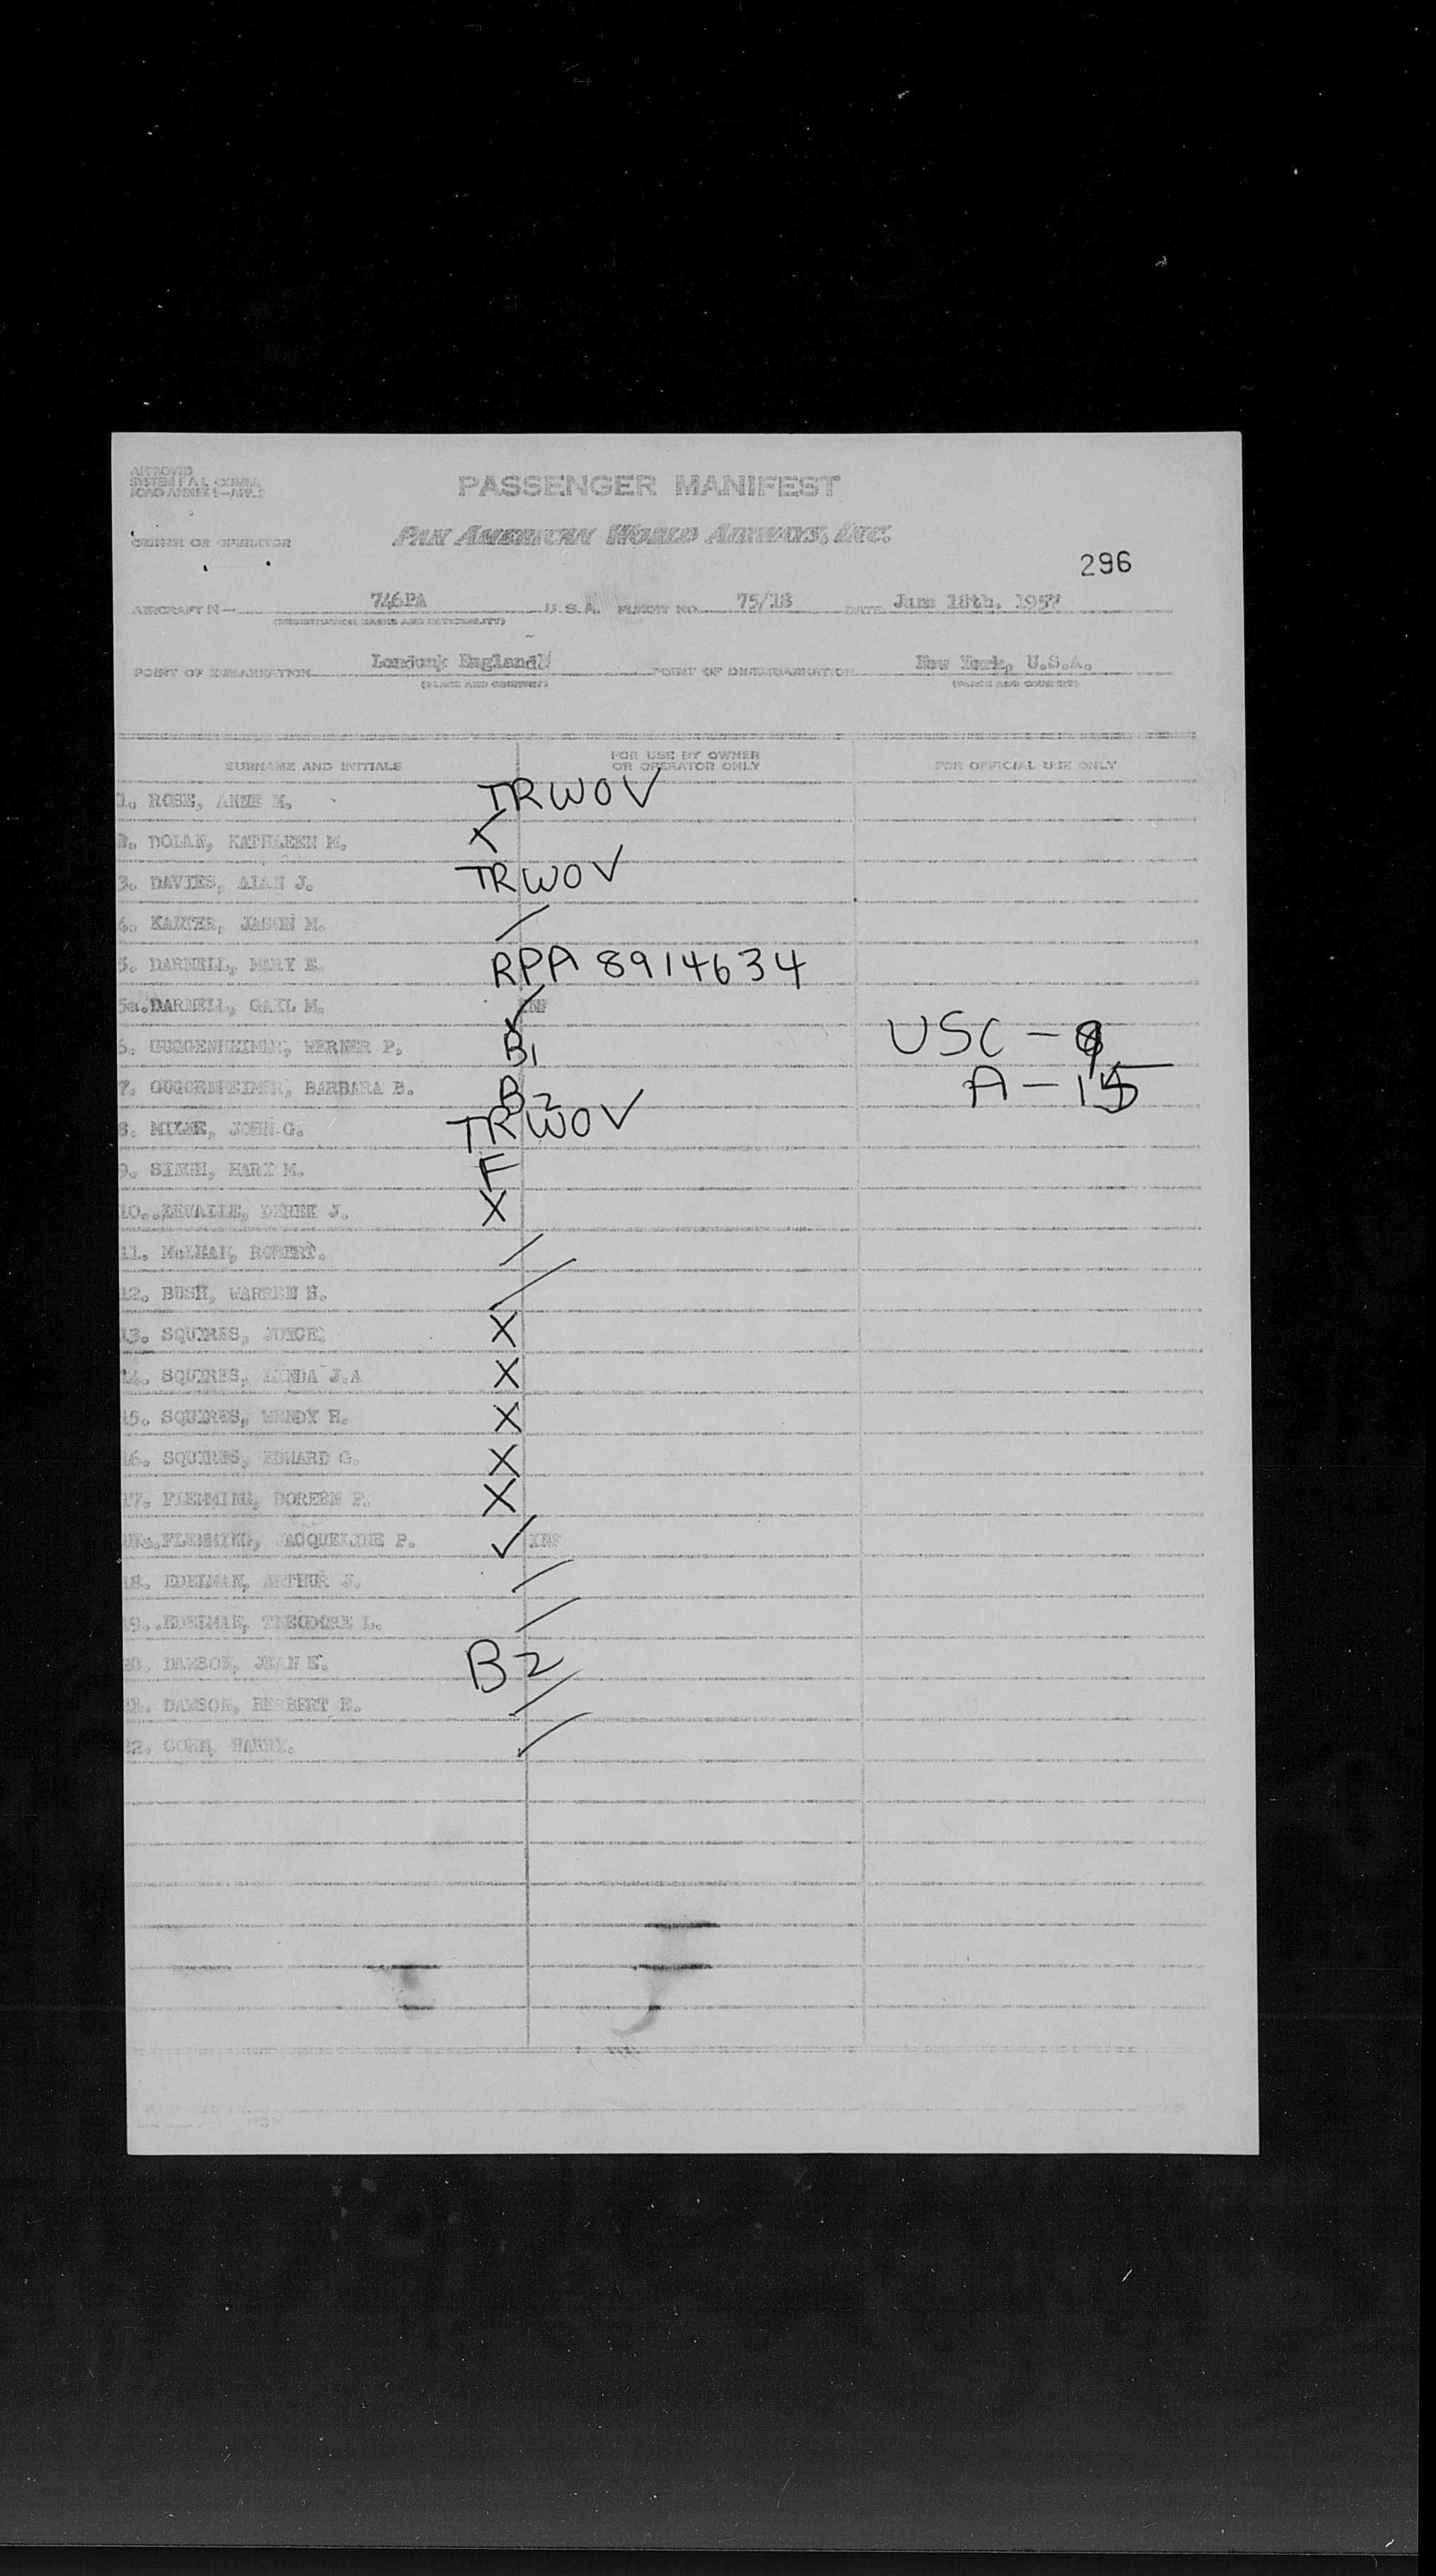 APPROVED
SYSTEM F.A.L. COMM.
ICAO ANNEX 9—APP. 2
PASSENGER MANIFEST
OWNER OR OPERATOR PAN AMERICAN WORLD AIRWAYS, INC.
296
AIRCRAFT N— 746PA U.S.A. FLIGHT NO. 75/18 DATE June 18th. 1957
(REGISTRATION MARKS AND NATIONALITY)
POINT OF EMBARKATION London, England POINT OF DISEMBARKATION New York, U.S.A.
(PLACE AND COUNTRY) (PLACE AND COUNTRY)
SURNAME AND INITIALS FOR USE BY OWNER OR OPERATOR ONLY FOR OFFICIAL USE ONLY
1. ROSE, ANNE M. TRWOV
2. DOLAN, KATHLEEN M. X
3. DAVIES, ALAN J. TRWOV
4. KANTER, JASON M. /
5. DARNELL, MARY E. RPA 8914634
5a. DARNELL, GAIL M. ✓ INF
6. GUGGENHEIMER, WERNER P. B1 USC -
7. GUGGENHEIMER, BARBARA B. B2 A - 15
8. MILNE, JOHN G. TRWOV
9. SINGH, HARI M. F
10. DEREK J. X
11. ROBERT. /
12. BUSH, WARREN H. /
13. SQUIRES, JOYCE. X
14. SQUIRES, LINDA J.A X
15. SQUIRES, WENDY H. X
16. SQUIRES, EDWARD G. X
17. FLEMMING, DOREEN P. X
17a. FLEMMING, JACQUELINE P. ✓ INF
18. EDELMAN, ARTHUR J. /
19. EDELMAN, THEODORE L. /
20. DAWSON, JEAN E. B2
21. DAWSON, HERBERT E. /
22. COHN, HARRY. /